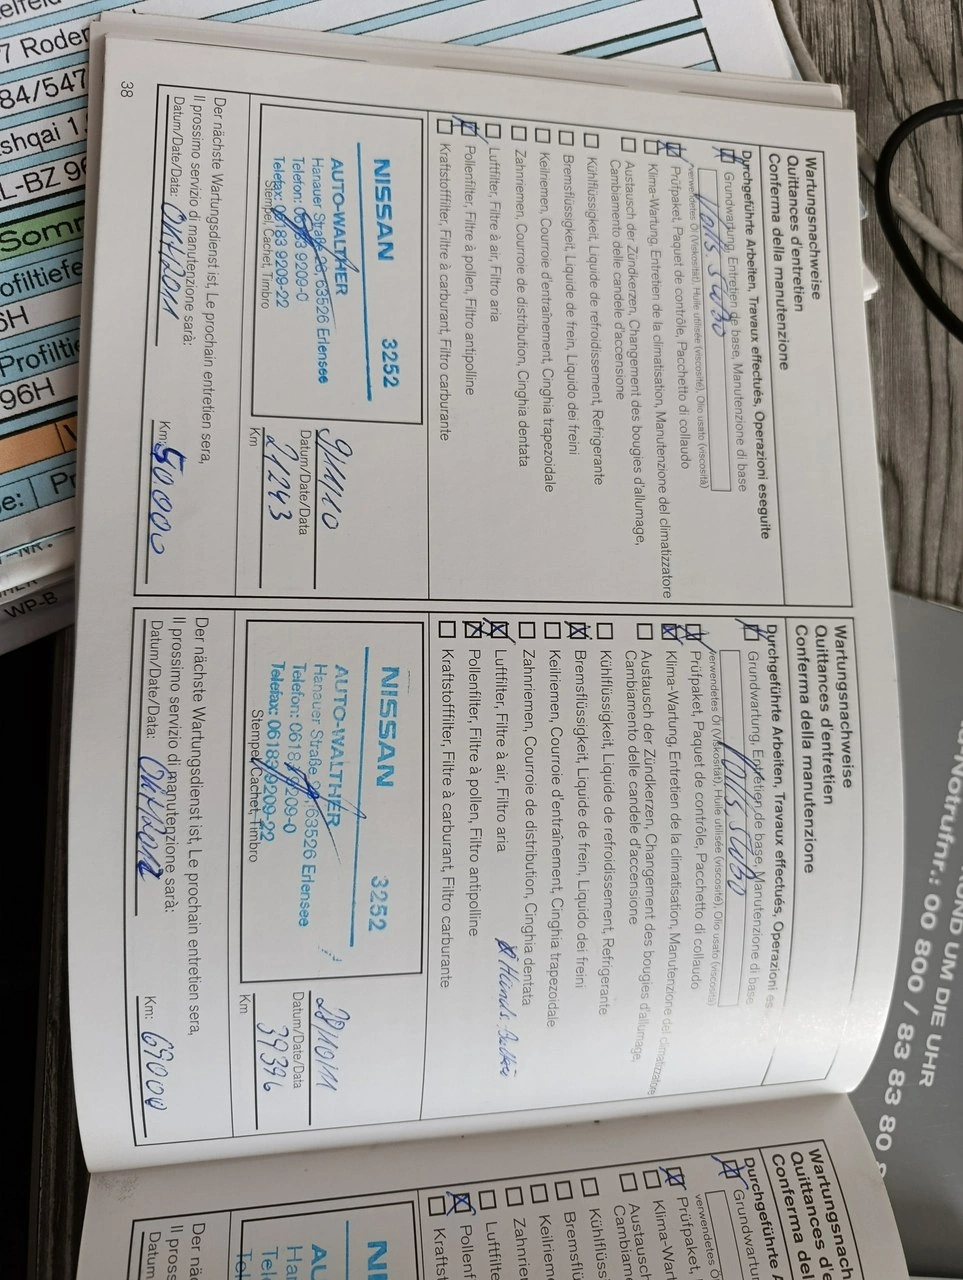 7 Roder
84/547
shqai 1.
L-BZ 96
Somm
ofiltiefe
6H
Profiltie
96H
e: Pr
WP-B
38
Wartungsnachweise
Quittances d'entretien
Conferma della manutenzione
Durchgeführte Arbeiten, Travaux effectués, Operazioni eseguite
Grundwartung, Entretien de base, Manutenzione di base
Vols. 5W30
verwendetes Öl (Viskosität), Huile utilisée (viscosité), Olio usato (viscosità)
Prüfpaket, Paquet de contrôle, Pacchetto di collaudo
Klima-Wartung, Entretien de la climatisation, Manutenzione del climatizzatore
Austausch der Zündkerzen, Changement des bougies d'allumage,
Cambiamento delle candele d'accensione
Kühlflüssigkeit, Liquide de refroidissement, Refrigerante
Bremsflüssigkeit, Liquide de frein, Liquido dei freini
Keilriemen, Courroie d'entraînement, Cinghia trapezoidale
Zahnriemen, Courroie de distribution, Cinghia dentata
Luftfilter, Filtre à air, Filtro aria
Pollenfilter, Filtre à pollen, Filtro antipolline
Kraftstofffilter, Filtre à carburant, Filtro carburante
NISSAN 3252
AUTO-WALTHER
Hanauer Straße 28, 63526 Erlensee
Telefon: 06183 9209-0
Telefax: 06183 9209-22
Stempel, Cachet, Timbro
9/11/10
Datum/Date/Data
21243
Km
Der nächste Wartungsdienst ist, Le prochain entretien sera,
Il prossimo servizio di manutenzione sarà:
Datum/Date/Data: Okt/2011 Km: 50000
Wartungsnachweise
Quittances d'entretien
Conferma della manutenzione
Durchgeführte Arbeiten, Travaux effectués, Operazioni es
Grundwartung, Entretien de base, Manutenzione di base
Vols 5W30
verwendetes Öl (Viskosität), Huile utilisée (viscosité), Olio usato (viscosità)
Prüfpaket, Paquet de contrôle, Pacchetto di collaudo
Klima-Wartung, Entretien de la climatisation, Manutenzione del climatizzatore
Austausch der Zündkerzen, Changement des bougies d'allumage,
Cambiamento delle candele d'accensione
Kühlflüssigkeit, Liquide de refroidissement, Refrigerante
Bremsflüssigkeit, Liquide de frein, Liquido dei freini
Keilriemen, Courroie d'entraînement, Cinghia trapezoidale
Zahnriemen, Courroie de distribution, Cinghia dentata
Luftfilter, Filtre à air, Filtro aria
Pollenfilter, Filtre à pollen, Filtro antipolline
Kraftstofffilter, Filtre à carburant, Filtro carburante
NISSAN 3252
AUTO-WALTHER
Hanauer Straße 63526 Erlensee
Telefon: 06183 9209-0
Telefax: 06183 9209-22
Stempel, Cachet, Timbro
28/10/11
Datum/Date/Data
39396
Km
Der nächste Wartungsdienst ist, Le prochain entretien sera,
Il prossimo servizio di manutenzione sarà:
Datum/Date/Data: Okt/2012 Km: 69000
Wartungsnach
Quittances d'
Conferma del
Durchgeführte A
Grundwartun
verwendetes Ö
Prüfpaket,
Klima-War
Austausch
Cambiam
Kühlflüss
Bremsflü
Keilrieme
Zahnrier
Luftfilter
Pollenf
Kraftst
Der nä
Il pross
Datum
RUND UM DIE UHR
Notrufnr.: 00 800 / 83 83 80